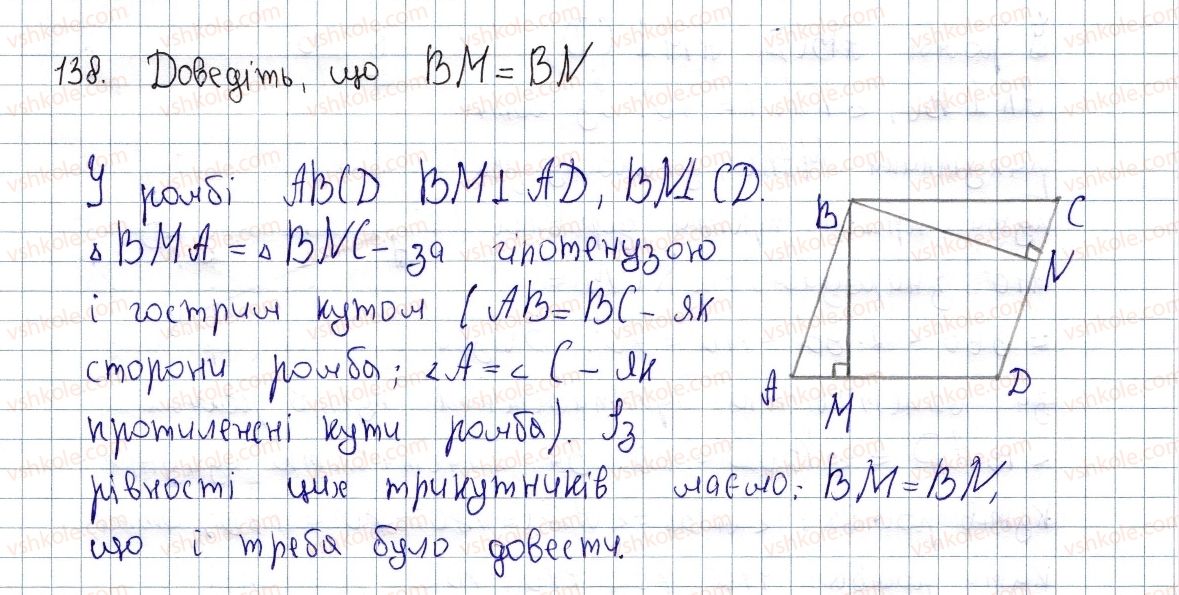 138. Доведіть, що BM = BN
У ромбі ABCD BM⊥AD, BM⊥CD.
▵BMA = ▵BNC – за гіпотенузою
і гострим кутом (AB = BC – як
сторони ромба; ∠A = ∠C – як
протилежні кути ромба). Із
рівності цих трикутників маємо: BM = BN,
що і треба було довести.
B
C
N
A
M
D